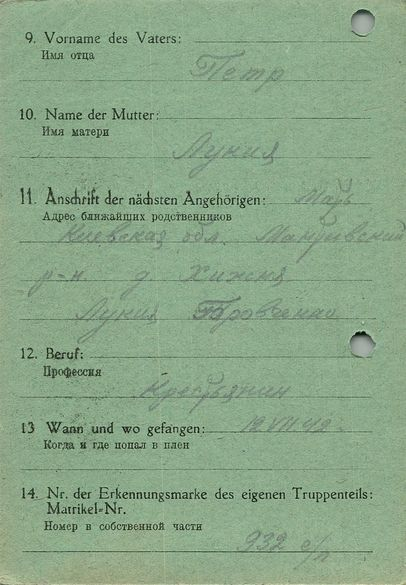 9. Vorname des Vaters:
Имя отца
Петр
10. Name der Mutter:
Имя матери
Лукия
11. Anschrift der nächsten Angehörigen: Мать
Адрес ближайших родственников
Киевская обл.
р-н д Хижня
Лукия
12. Beruf:
Профессия
Крестьянин
13 Wann und wo gefangen: 12 VII 42
Когда и где попал в плен
14. Nr. der Erkennungsmarke des eigenen Truppenteils:
Matrikel-Nr.
Номер в собственной части
932 с/п